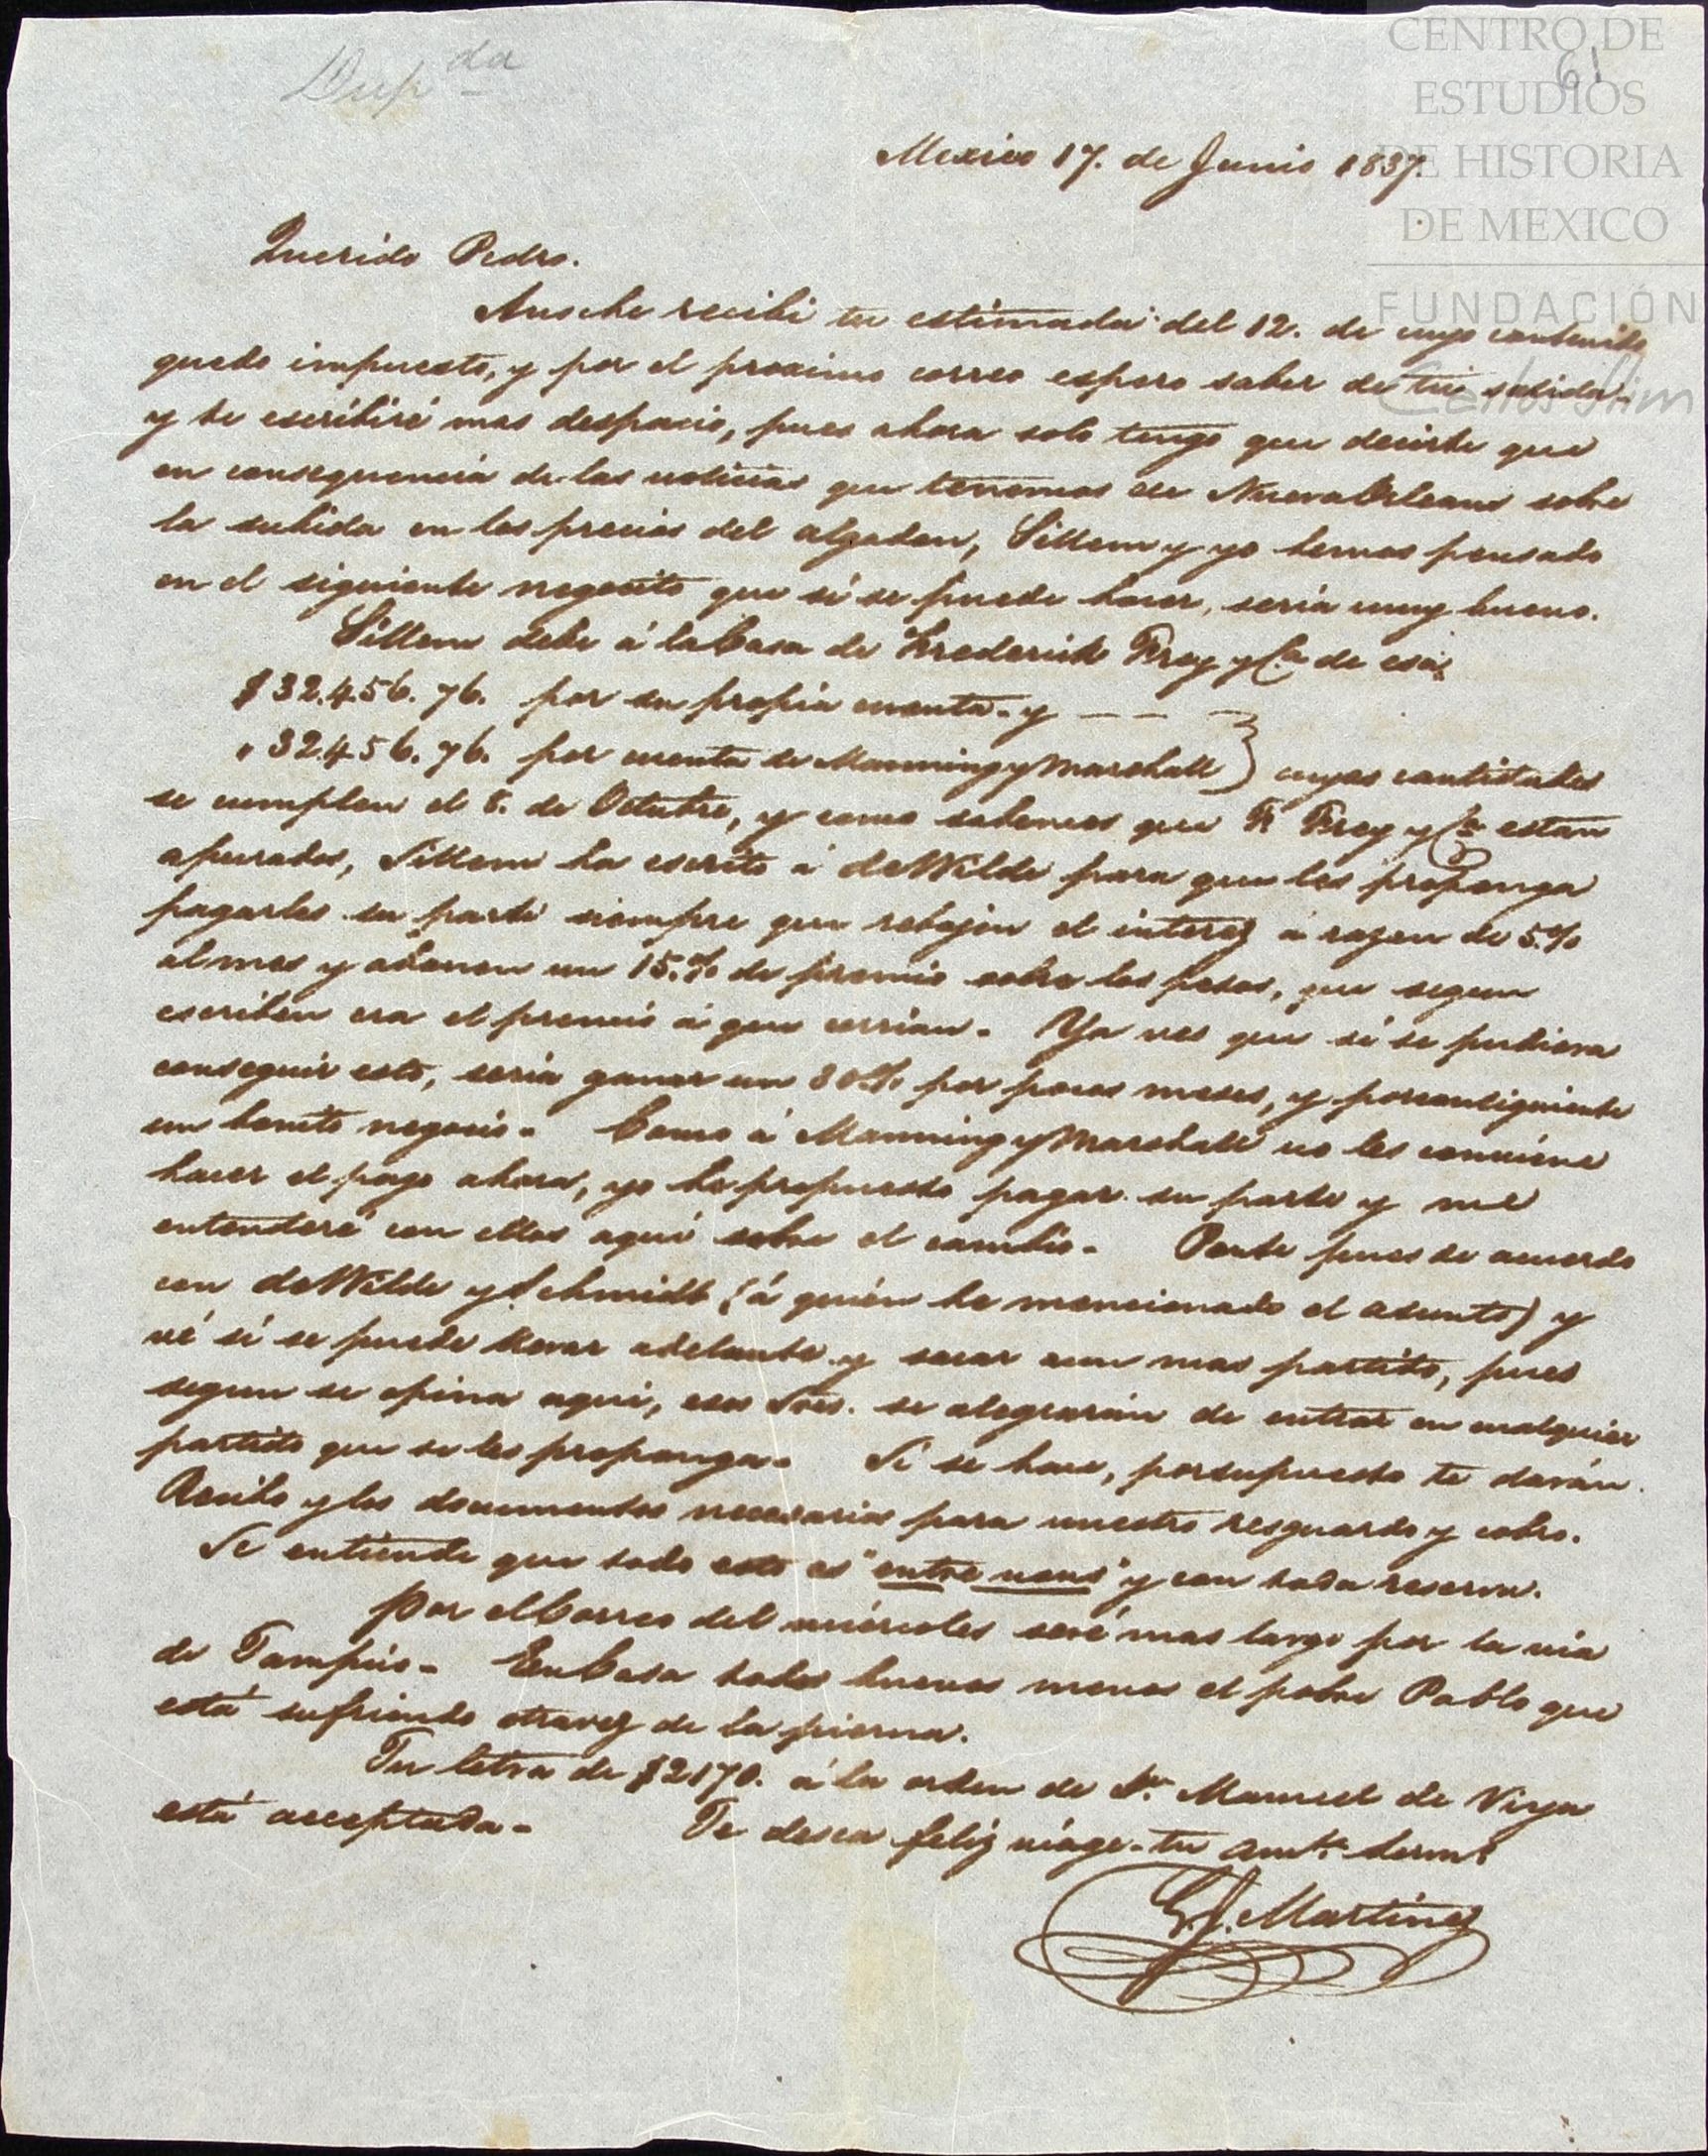 Dup.da
61
CENTRO DE
ESTUDIOS
DE HISTORIA
DE MEXICO
FUNDACIÓN
Carlos Slim
Mexico 17. de Junio 1837.
Querido Pedro.
Anoche recibi tu estimada del 12. de cuyo contenido
quedo impuesto, y por el proximo correo espero saber de tu salida.
y te escribiré mas despacio, pues ahora solo tengo que decirte que
en consequencia de las noticias que tenemos de Nueva Orleans sobre
la subida en los precios del algodon, Sillem y yo hemos pensado
en el siguiente negocito que si se puede hacer, seria muy bueno.
Sillem debe á la Casa de Frederick Frey y Ca de esa
$32.456.76. por su propia cuenta. y
" 32456.76. por cuenta de Manning y Marshall } cuyas cantidades
se cumplen el 8. de Octubre, y como sabemos que F. Frey y Ca estan
apurados, Sillem ha escrito á deWilde para que les proponga
pagarles su parte siempre que rebajen el interez á razon de 5%
al mes y abonen un 15.% de premio sobre los pesos, que segun
escriben era el premio á que corrian. Ya ves que si se pudiera
conseguir esto, seria ganar un 30% por pocos meses, y porconsiguiente
un bonito negocio. Como á Manning y Marshall no les conviene
hacer el pago ahora, yo he propuesto pagar su parte y me
entenderé con ellos aqui sobre el cambio. Ponte pues de acuerdo
con deWilde y Schmidt (á quién he mencionado el asunto) y
vé si se puede llevar adelante y sacar aun mas partido, pues
segun se opina aqui, esos Sres. se alegrarán de entrar en cualquier
partido que se les proponga. Si se hace, porsupuesto te darán
Recibo y los documentos necesarios para nuestro resguardo y cobro.
Se entiende que todo esto es "entre nous" y con toda reserva.
Por el Correo del miércoles seré mas largo por la via
de Tampico. En Casa todos buenos menos el pobre Pablo que
está sufriendo otravez de la pierna.
Tu letra de $2170. á la orden de Dn Manuel de Viya
está acceptada. Te desea feliz viage. tu amte hermo
G. J. Martinez